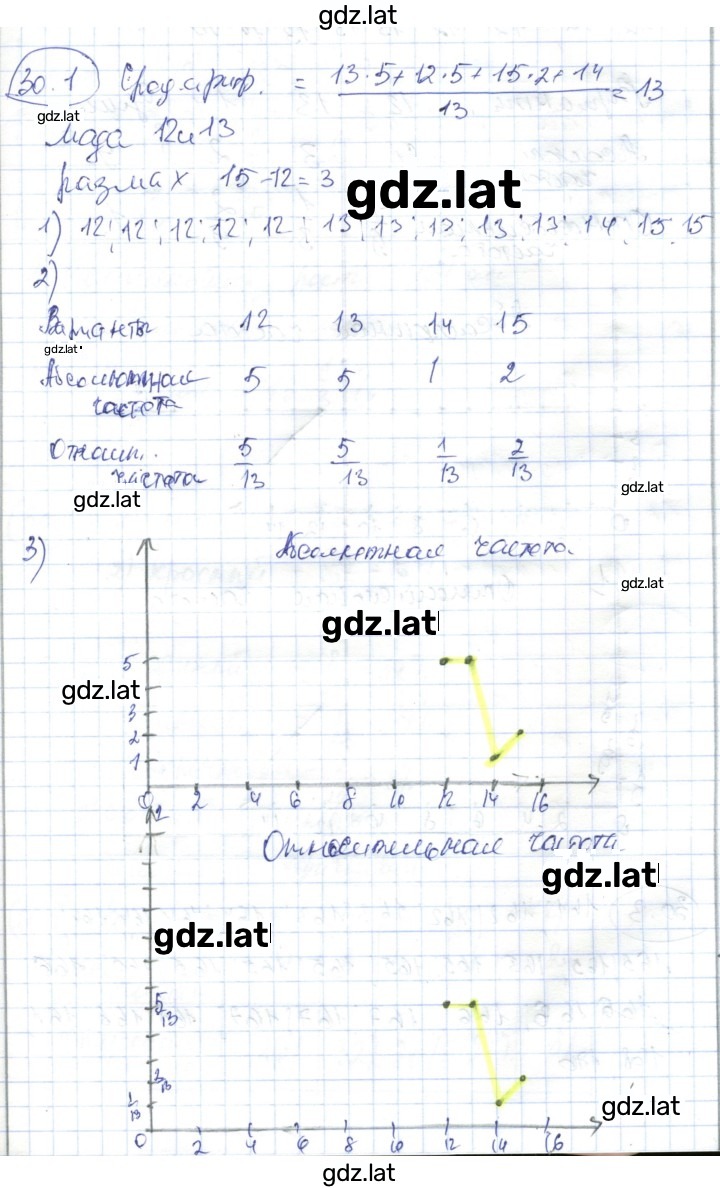 gdz.lat
30.1 Сред. арифр. = 13·5+12·5+15·2+14 / 13 = 13
gdz.lat
мода 12 и 13
размах 15-12=3
gdz.lat
1) 12; 12; 12; 12; 12; 13; 13; 13; 13; 13; 14; 15 15
2)
Варианты 12 13 14 15
gdz.lat
Абсолютная частота 5 5 1 2
Относит. частота 5/13 5/13 1/13 2/13
gdz.lat
gdz.lat
3) Абсолютная частота.
gdz.lat
gdz.lat
5
gdz.lat
3
2
1
0 2 4 6 8 10 12 14 16
Относительная частота.
gdz.lat
gdz.lat
5/13
2/13
1/13
gdz.lat
0 2 4 6 8 10 12 14 16
gdz.lat